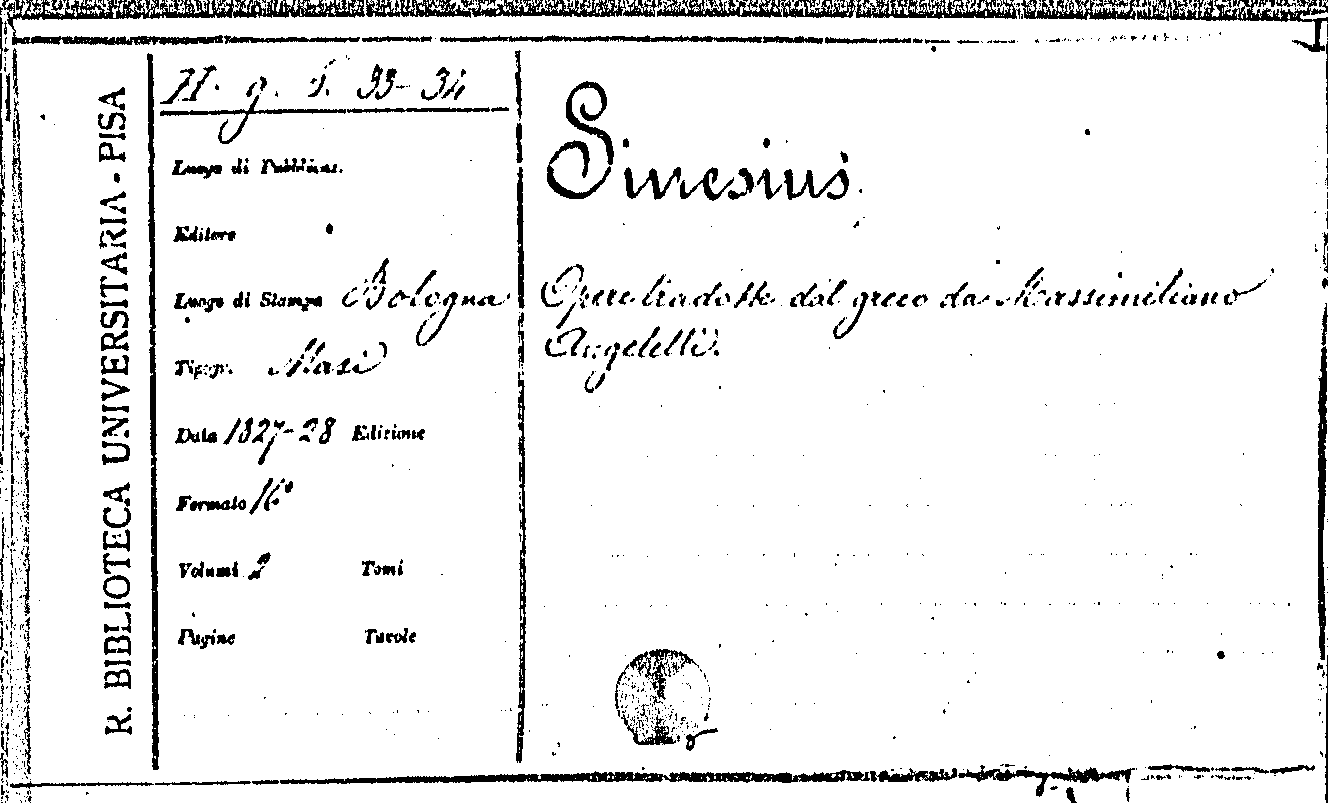 R. BIBLIOTECA UNIVERSITARIA - PISA
H. g. 5. 33-34
Luogo di Pubblicaz.
Editore
Luogo di Stampa Bologna
Tipogr. Masi
Data 1827-28 Edizione
Formato 16°
Volumi 2 Tomi
Pagine Tavole
Sinesius
Opere tradotte dal greco da Massimiliano
Angelelli.